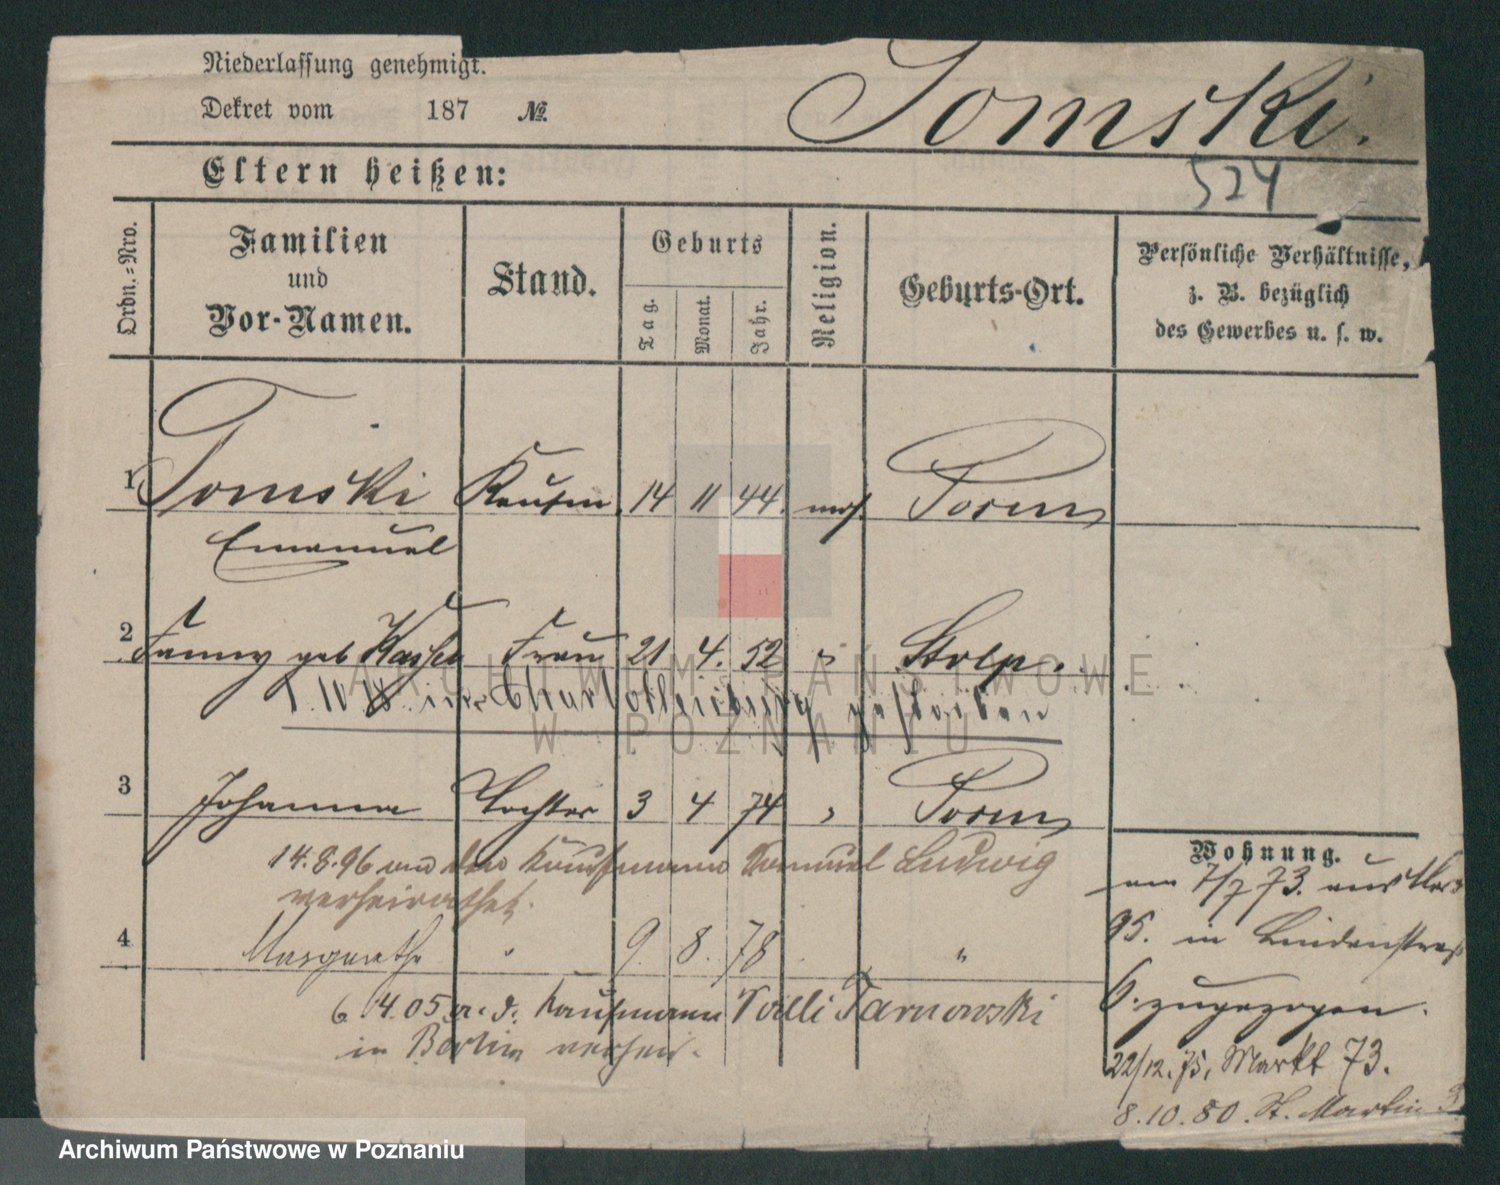 Niederlassung genehmigt.
Dekret vom 187 №
Tomski.
Eltern heißen:
524
Ordn.-Nro.
Familien
und
Vor-Namen.
Stand.
Geburts
Tag.
Monat.
Jahr.
Religion.
Geburts-Ort.
Persönliche Verhältnisse,
z. B. bezüglich
des Gewerbes u. s. w.
1 Tomski Kaufm. 14 11 44. mos. Posen
Emanuel
2 Fanny geb Frau 21 4. 52 " Stolp.
in Charlottenburg gestorben
3 Johanna Tochter 3 4 74 " Posen
14.8.96 an den Kaufmann Samuel Ludwig
verheirathet.
4 Margarethe " 9. 8. 78 "
6 4.05 a. d. Kaufmann Willi Tarnowski
in Berlin verheir.
Wohnung.
am 7/7 73. aus
95. in Lindenstraß
6. zugezogen.
22/12. 75, Markt 73.
8.10.80. St. Martin
ARCHIWUM PAŃSTWOWE
W POZNANIU
Archiwum Państwowe w Poznaniu